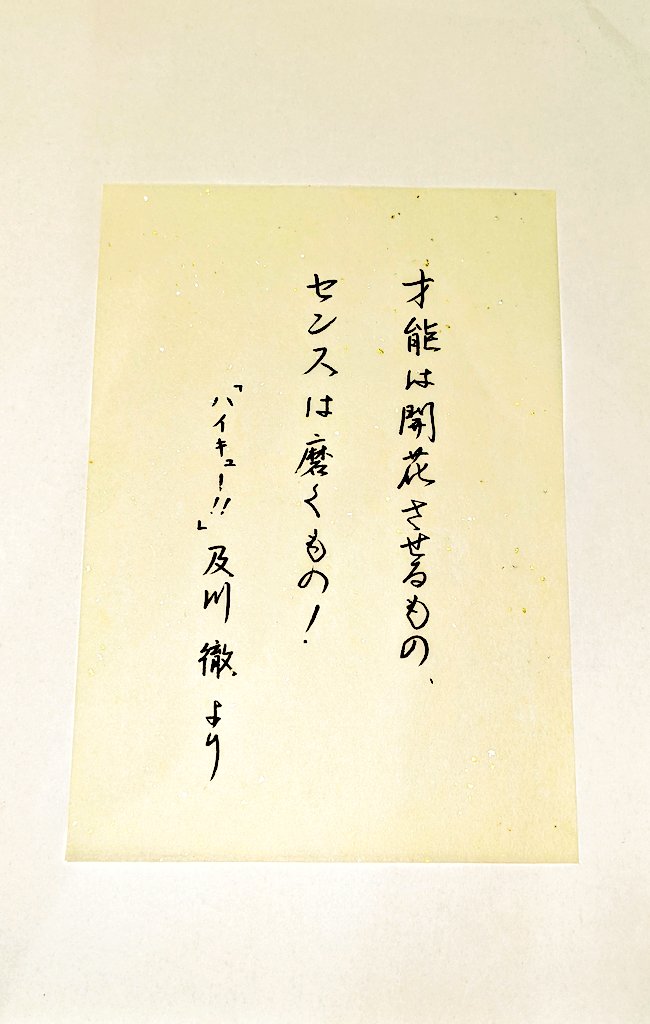 才能は開花させるもの、
センスは磨くもの!
「ハイキュー!!」及川 徹 より